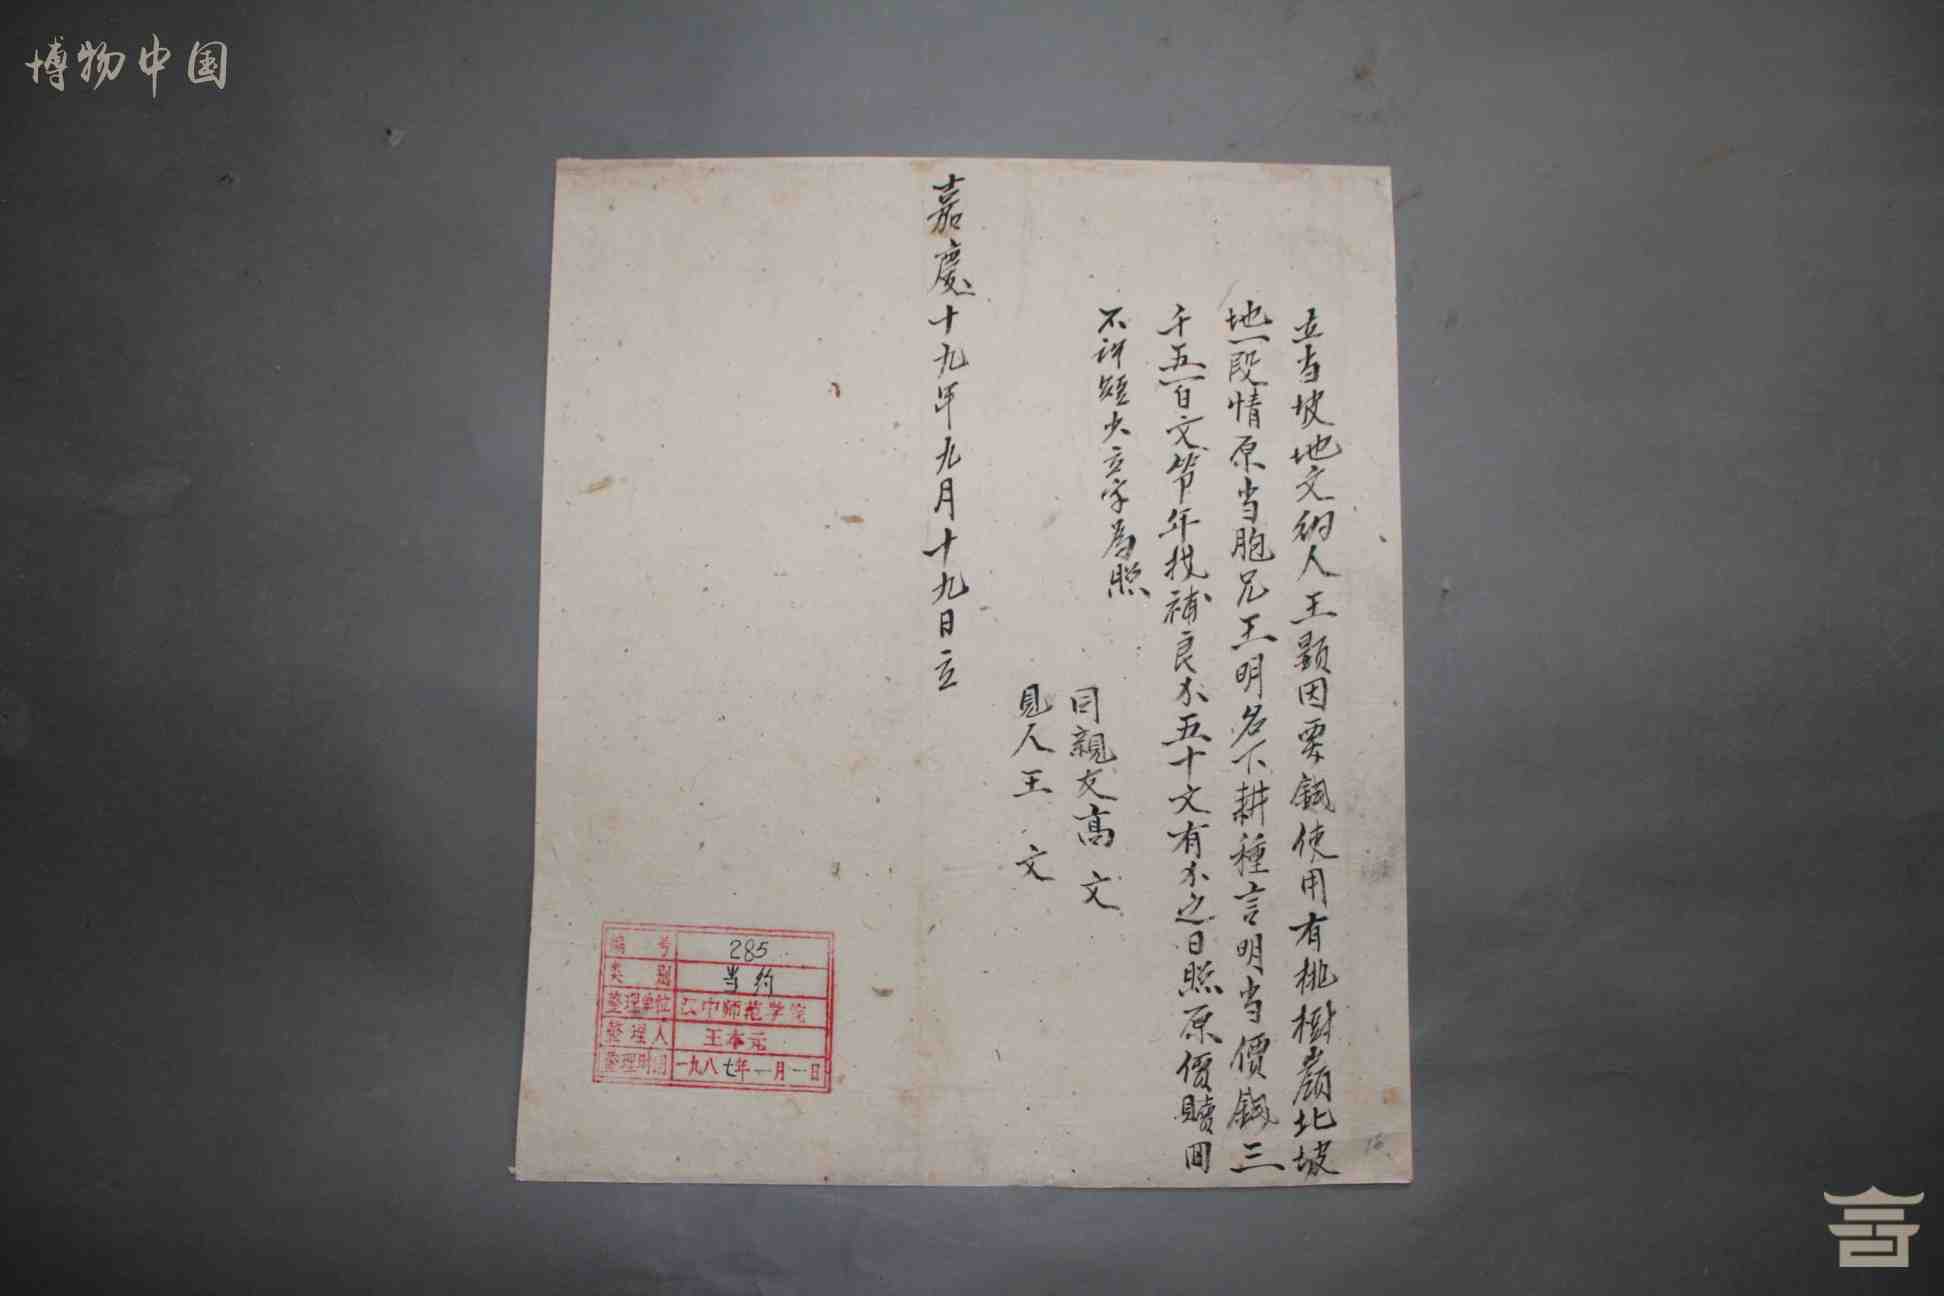 博物中国
立当坡地文约人王顕因要錢使用有桃樹嶺北坡
地一段情原当胞兄王明名下耕種言明当價錢三
千五百文節年找補良々五十文有々之日照原價贖回
不許短少立字為照
同親友高文
見人王文
嘉慶十九年九月十九日立
编号 285
类别 当约
整理单位 汉中师范学院
整理人 王本元
整理时间 一九八七年一月一日